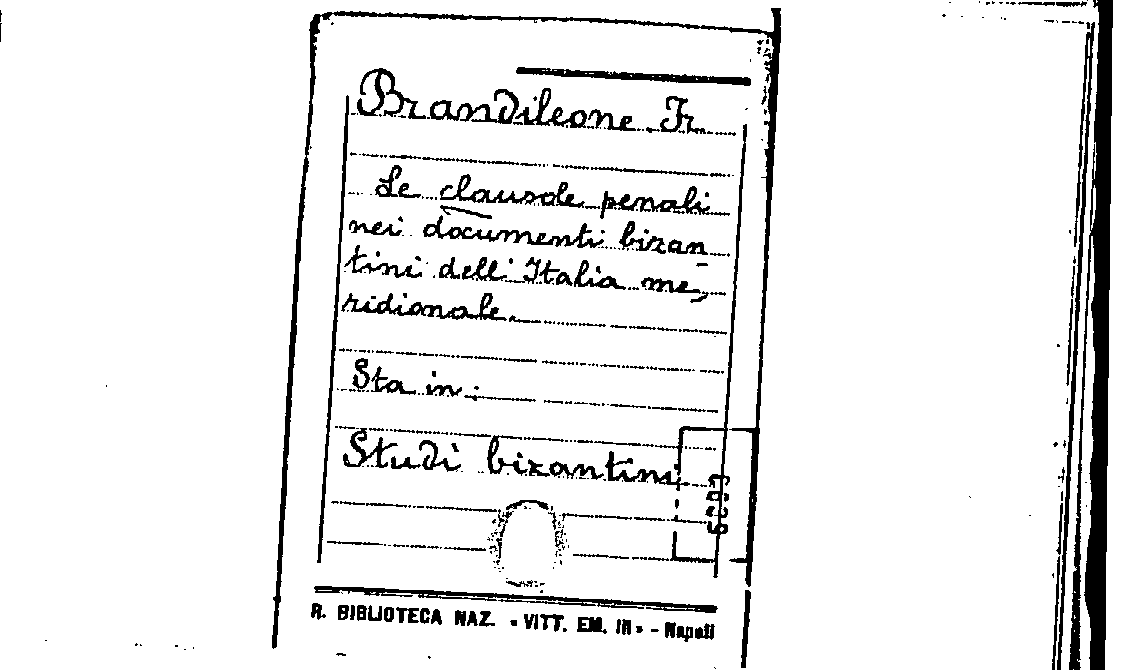 Brandileone Fr.
Le clausole penali
nei documenti bizan
tini dell'Italia me,
ridionale.
Sta in:
Studi bizantini
R. BIBLIOTECA NAZ. « VITT. EM. III » - Napoli